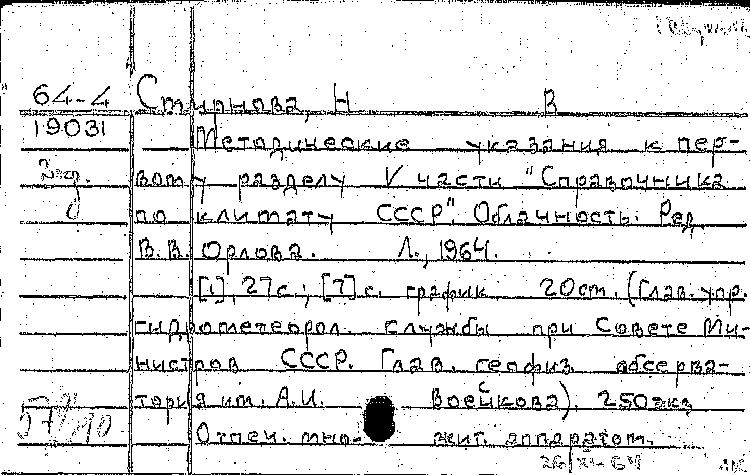 64-4 Смирнова, Н В
19031
Методические указания к пер-
2 эк.
вому разделу V части "Справочника
по климату СССР". Облачность. Ред.
В.В. Орлова. Л., 1964.
[1], 27с.; [7] с. график 20см. (Глав. упр.
гидрометеорол. службы при Совете Ми-
нистров СССР. Глав. геофиз. обсерва-
тория им. А.И. Воейкова). 250экз
57 90
Отпеч. мно- жит. аппаратом.
26/XI-64